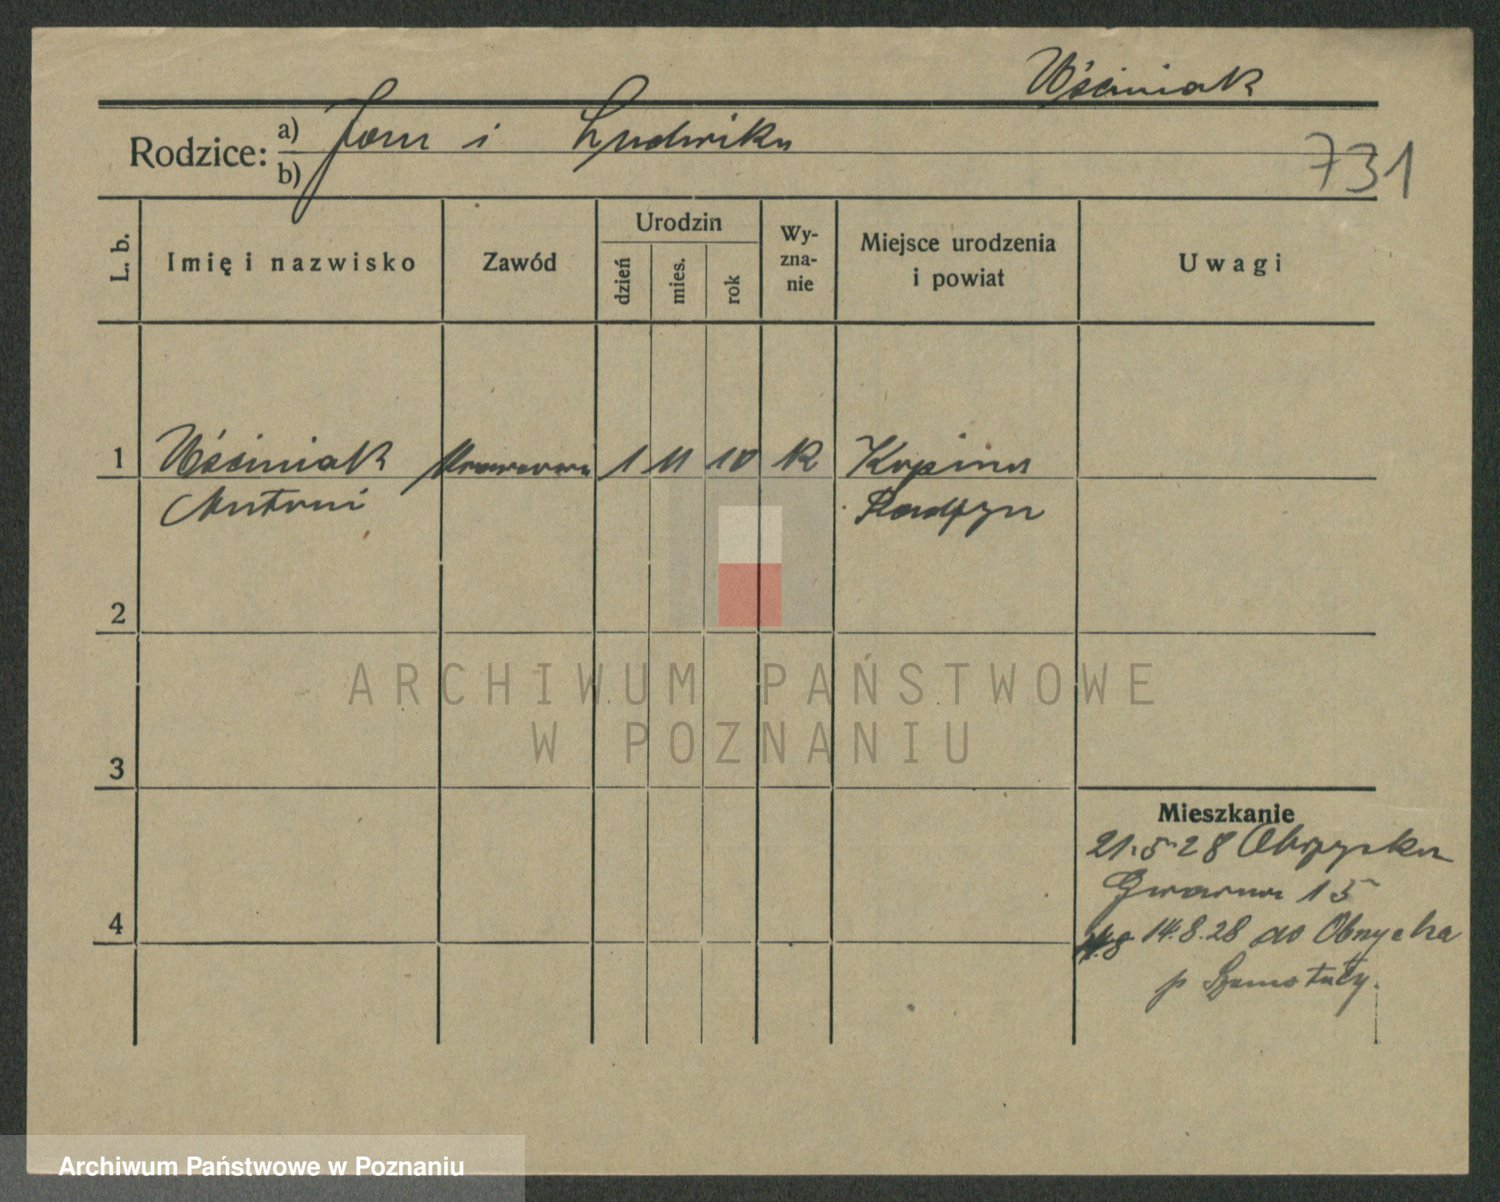 Uściniak
Rodzice: a) Jan i Ludwika
b)
731
L. b.
Imię i nazwisko
Zawód
Urodzin
dzień
mies.
rok
Wy-
zna-
nie
Miejsce urodzenia
i powiat
Uwagi
1 Uściniak 1 11 10 K Kopina
Antoni Radzyn
2
3
4
Mieszkanie
21.5.28 Obrzycko
15
14.8.28 do
p Szamotuły.
ARCHIWUM PAŃSTWOWE
W POZNANIU
Archiwum Państwowe w Poznaniu